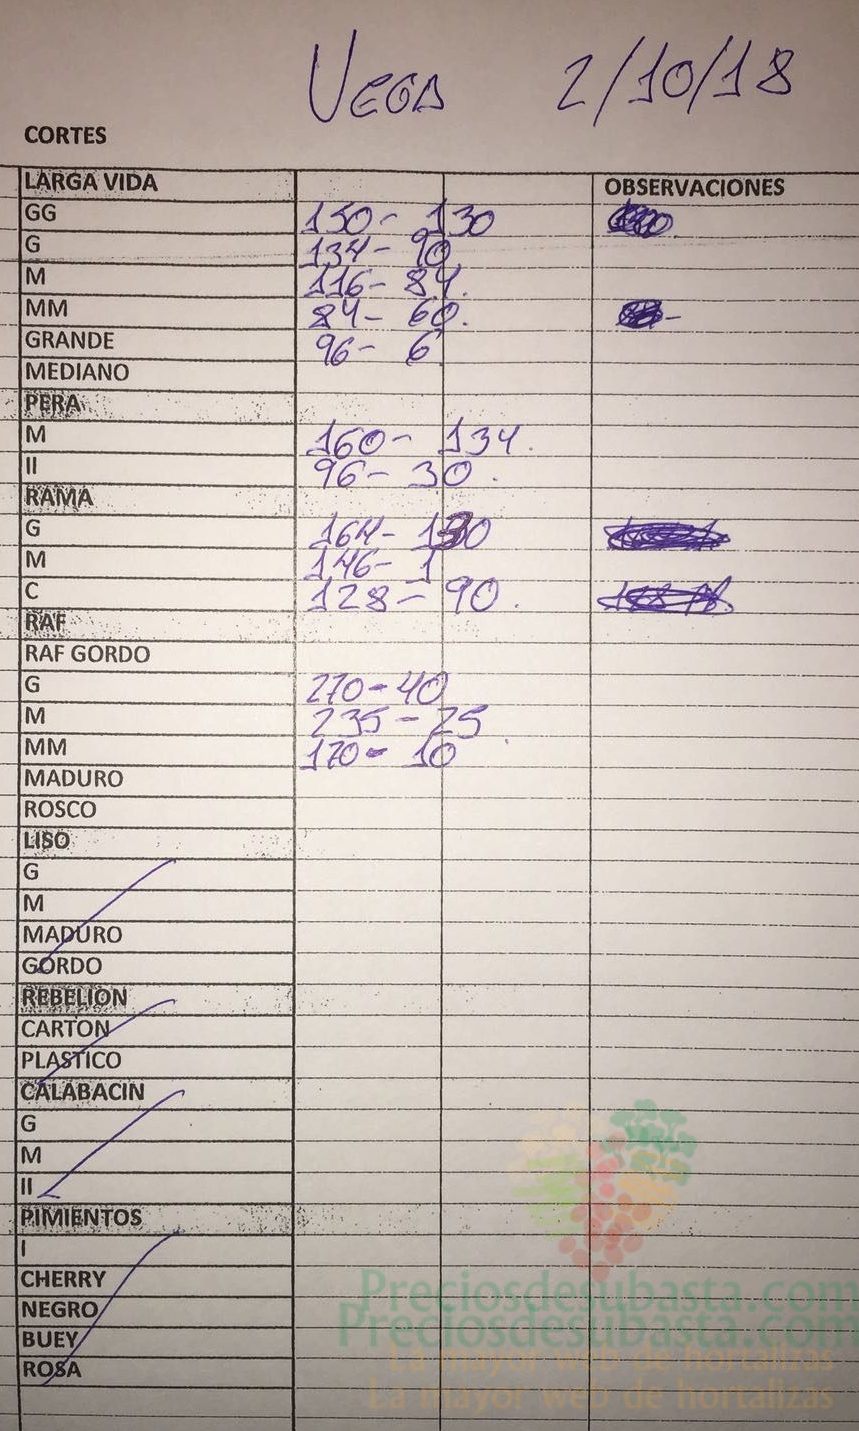 VEGA 2/10/18
CORTES
LARGA VIDA OBSERVACIONES
GG 150- 130
G 134- 90
M 116- 84.
MM 84- 60.
GRANDE 96- 6
MEDIANO
PERA
M 160- 134.
II 96- 30.
RAMA
G 164- 130
M 146- 1
C 128- 90.
RAF
RAF GORDO
G 270-40
M 235-25
MM 170- 10
MADURO
ROSCO
LISO
G
M
MADURO
GORDO
REBELION
CARTON
PLASTICO
CALABACIN
G
M
II
PIMIENTOS
I
CHERRY
NEGRO
BUEY
ROSA
Preciosdesubasta.com
Preciosdesubasta.com
La mayor web de hortalizas
La mayor web de hortalizas